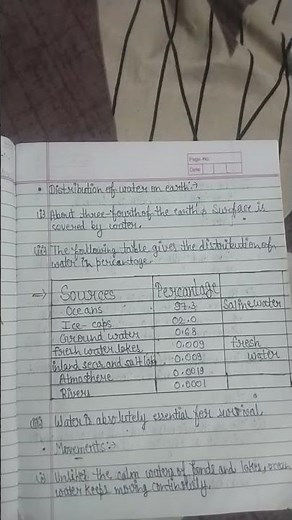 Page No.
Date
• Distribution of water on earth :→
(i) About three-fourth of the earth's surface is
covered by water.
(ii) The following table gives the distribution of
water in percentage.
⇒ Sources Percentage
Oceans 97.3 Saline water
Ice-caps 02.0
Ground water 0.68
fresh water lakes 0.009 fresh
inland seas and salt lakes 0.009 water
Atmosphere 0.0019
Rivers 0.0001
(iii) Water is absolutely essential for survival
• Movements :→
(i) Unlike the calm waters of Ponds and lakes, ocean
water keeps moving continuously.